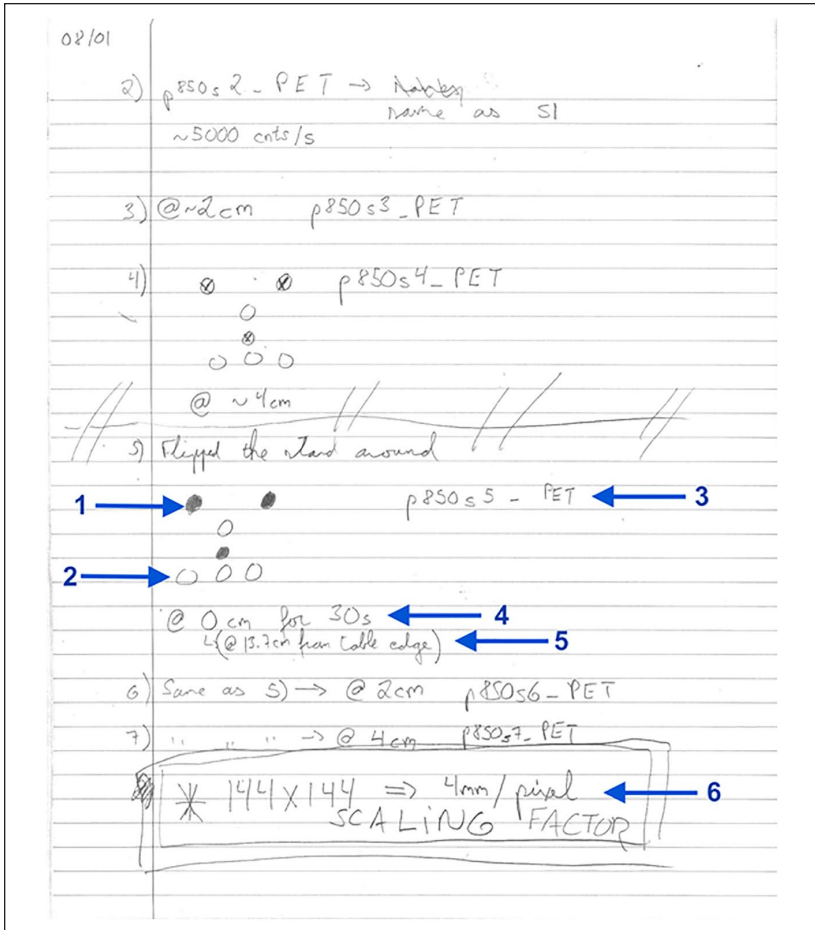 08/01
2) p850s2_PET →
name as S1
~5000 cnts/s
3) @~2cm p850s3_PET
4) p850s4_PET
@ ~4cm
5) Flipped the stand around
1
p850s5 - PET 3
2
@ 0cm for 30s 4
↳(@ 13.7cm from table edge) 5
6) Same as 5) → @ 2cm p850s6_PET
7) " " " → @ 4cm p850s7_PET
* 144X144 ⇒ 4mm/pixel 6
SCALING FACTOR